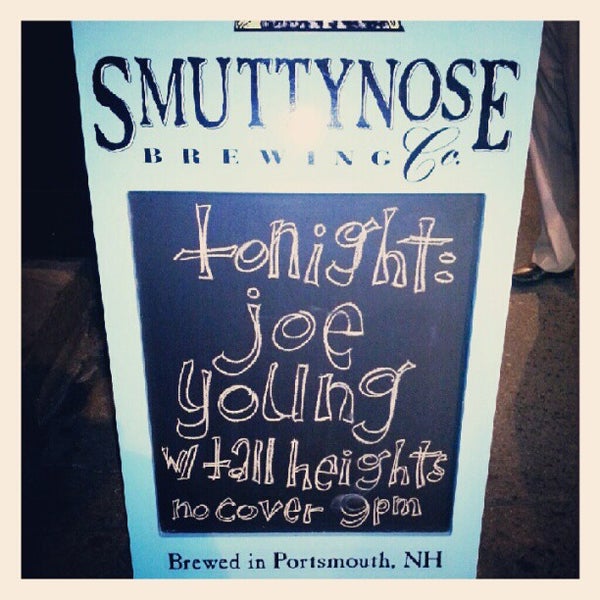 SMUTTYNOSE
BREWING Co.
tonight:
joe
young
w/ tall heights
no cover 9pm
Brewed in Portsmouth, NH